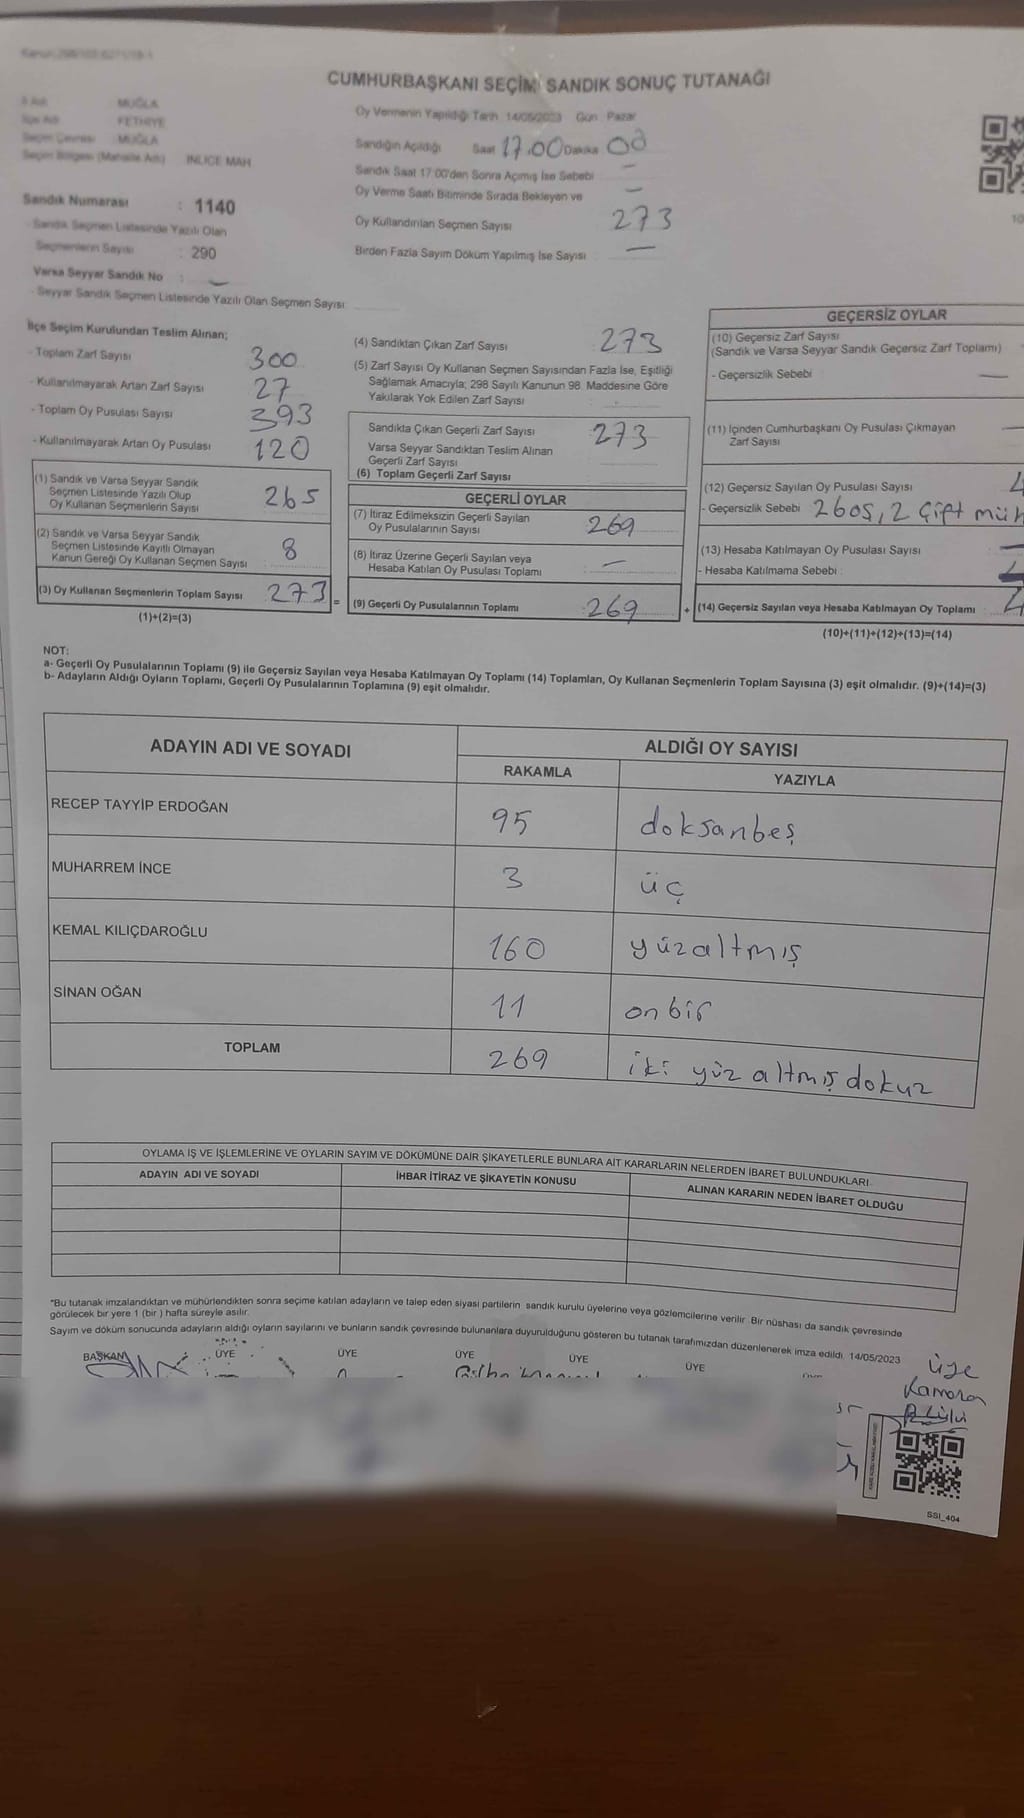 Kanun:298/105,6271/19-1
CUMHURBAŞKANI SEÇİMİ SANDIK SONUÇ TUTANAĞI
İl Adı MUĞLA
İlçe Adı FETHİYE
Seçim Çevresi MUĞLA
Seçim Bölgesi (Mahalle Adı) INLICE MAH
Sandık Numarası : 1140
- Sandık Seçmen Listesinde Yazılı Olan
Seçmenlerin Sayısı : 290
Varsa Seyyar Sandık No : —
- Seyyar Sandık Seçmen Listesinde Yazılı Olan Seçmen Sayısı:
Oy Vermenin Yapıldığı Tarih 14/05/2023 Gün Pazar
Sandığın Açıldığı Saat 17.00 Dakika 00
Sandık Saat 17:00'den Sonra Açımış İse Sebebi —
Oy Verme Saati Bitiminde Sırada Bekleyen ve —
Oy Kullandırılan Seçmen Sayısı 273
Birden Fazla Sayım Döküm Yapılmış İse Sayısı —
İlçe Seçim Kurulundan Teslim Alınan;
- Toplam Zarf Sayısı 300
- Kullanılmayarak Artan Zarf Sayısı 27
- Toplam Oy Pusulası Sayısı 393
- Kullanılmayarak Artan Oy Pusulası 120
(1) Sandık ve Varsa Seyyar Sandık
Seçmen Listesinde Yazılı Olup
Oy Kullanan Seçmenlerin Sayısı 265
(2) Sandık ve Varsa Seyyar Sandık
Seçmen Listesinde Kayıtlı Olmayan
Kanun Gereği Oy Kullanan Seçmen Sayısı 8
(3) Oy Kullanan Seçmenlerin Toplam Sayısı 273 =
(1)+(2)=(3)
(4) Sandıktan Çıkan Zarf Sayısı 273
(5) Zarf Sayısı Oy Kullanan Seçmen Sayısından Fazla İse, Eşitliği
Sağlamak Amacıyla; 298 Sayılı Kanunun 98. Maddesine Göre
Yakılarak Yok Edilen Zarf Sayısı :
Sandıkta Çıkan Geçerli Zarf Sayısı 273
Varsa Seyyar Sandıktan Teslim Alınan
Geçerli Zarf Sayısı
(6) Toplam Geçerli Zarf Sayısı
GEÇERLİ OYLAR
(7) İtiraz Edilmeksizin Geçerli Sayılan
Oy Pusulalarının Sayısı 269
(8) İtiraz Üzerine Geçerli Sayılan veya
Hesaba Katılan Oy Pusulası Toplamı —
(9) Geçerli Oy Pusulalarının Toplamı 269 +
GEÇERSİZ OYLAR
(10) Geçersiz Zarf Sayısı
(Sandık ve Varsa Seyyar Sandık Geçersiz Zarf Toplamı)
- Geçersizlik Sebebi —
(11) İçinden Cumhurbaşkanı Oy Pusulası Çıkmayan
Zarf Sayısı —
(12) Geçersiz Sayılan Oy Pusulası Sayısı 4
- Geçersizlik Sebebi 2 , 2 Çift müh
(13) Hesaba Katılmayan Oy Pusulası Sayısı —
- Hesaba Katılmama Sebebi :
(14) Geçersiz Sayılan veya Hesaba Katılmayan Oy Toplamı 4
(10)+(11)+(12)+(13)=(14)
NOT:
a- Geçerli Oy Pusulalarının Toplamı (9) ile Geçersiz Sayılan veya Hesaba Katılmayan Oy Toplamı (14) Toplamları, Oy Kullanan Seçmenlerin Toplam Sayısına (3) eşit olmalıdır. (9)+(14)=(3)
b- Adayların Aldığı Oyların Toplamı, Geçerli Oy Pusulalarının Toplamına (9) eşit olmalıdır.
ADAYIN ADI VE SOYADI ALDIĞI OY SAYISI
RAKAMLA YAZIYLA
RECEP TAYYİP ERDOĞAN 95 doksanbeş
MUHARREM İNCE 3 üç
KEMAL KILIÇDAROĞLU 160 yüzaltmış
SİNAN OĞAN 11 onbir
TOPLAM 269 iki yüz altmış dokuz
OYLAMA İŞ VE İŞLEMLERİNE VE OYLARIN SAYIM VE DÖKÜMÜNE DAİR ŞİKAYETLERLE BUNLARA AİT KARARLARIN NELERDEN İBARET BULUNDUKLARI
ADAYIN ADI VE SOYADI İHBAR İTİRAZ VE ŞİKAYETİN KONUSU ALINAN KARARIN NEDEN İBARET OLDUĞU
*Bu tutanak imzalandıktan ve mühürlendikten sonra seçime katılan adayların ve talep eden siyasi partilerin sandık kurulu üyelerine veya gözlemcilerine verilir. Bir nüshası da sandık çevresinde
görülecek bir yere 1 (bir ) hafta süreyle asılır.
Sayım ve döküm sonucunda adayların aldığı oyların sayılarını ve bunların sandık çevresinde bulunanlara duyurulduğunu gösteren bu tutanak tarafımızdan düzenlenerek imza edildi. 14/05/2023
BAŞKAN ÜYE ÜYE ÜYE ÜYE ÜYE
üye
SSI_404